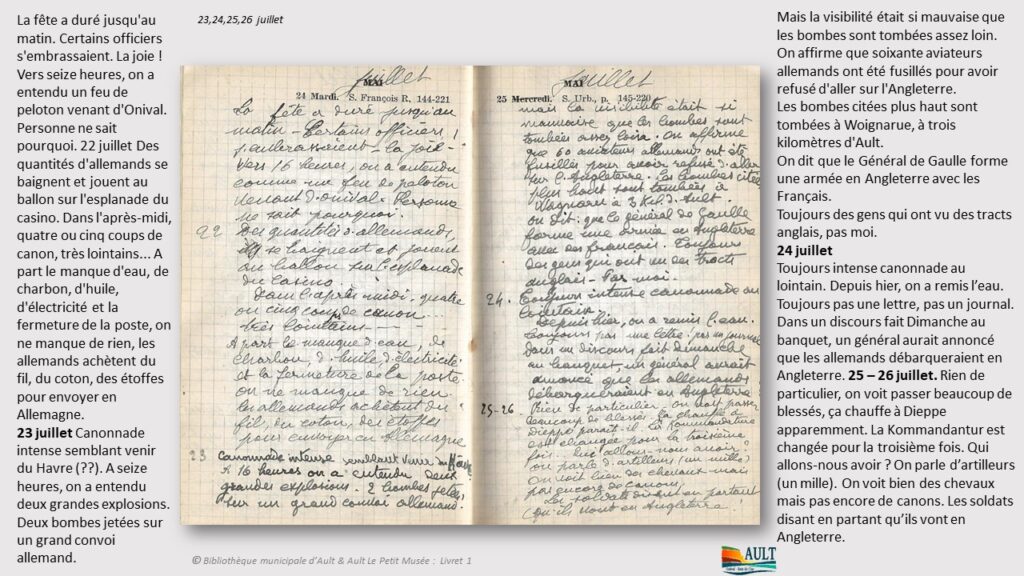 La fête a duré jusqu'au
matin. Certains officiers
s'embrassaient. La joie !
Vers seize heures, on a
entendu un feu de
peloton venant d'Onival.
Personne ne sait
pourquoi. 22 juillet Des
quantités d'allemands se
baignent et jouent au
ballon sur l'esplanade du
casino. Dans l'après-midi,
quatre ou cinq coups de
canon, très lointains... A
part le manque d'eau, de
charbon, d'huile,
d'électricité et la
fermeture de la poste, on
ne manque de rien, les
allemands achètent du
fil, du coton, des étoffes
pour envoyer en
Allemagne.
23 juillet Canonnade
intense semblant venir
du Havre (??). A seize
heures, on a entendu
deux grandes explosions.
Deux bombes jetées sur
un grand convoi
allemand.
23,24,25,26 juillet
juillet
MAI
24 Mardi. S. François R, 144-221
La fête a duré jusqu'au
matin - Certains officiers
s'embrassaient - La joie -
vers 16 heures, on a entendu
comme un feu de peloton
venant d'onival. Personne
ne sait pourquoi.
22 Des quantités d'allemands
se baignent et jouent
au ballon sur l'esplanade
du Casino.
Dans l'après-midi, quatre
ou cinq coups de canon...
très lointains - - -
A part le manque d'eau, de
charbon, d'huile, d'électricité
et la fermeture de la poste
on ne manque de rien
les allemands achètent du
fil, du coton, des étoffes
pour envoyer en Allemagne
23 Canonnade intense semblant venir du Havre
A 16 heures on a entendu deux
grandes explosions. 2 bombes jetées
sur un grand convoi allemand.
juillet
MAI
25 Mercredi. S. Urb., p. 145-220
mais la visibilité était si
mauvaise que les bombes sont
tombées assez loin. On affirme
que 60 aviateurs allemands ont été
fusillés pour avoir refusé d'aller
sur l'Angleterre. Les bombes citées
plus haut sont tombées à
Woignarue à 3 Kil. d'Ault.
on dit que le général de Gaulle
forme une armée en Angleterre
avec les français. Toujours
des gens qui ont vu des tracts
anglais - Pas moi.
24. Toujours intense canonnade au
lointain.
Depuis hier, on a remis l'eau.
Toujours pas une lettre - pas un journal
Dans un discours fait dimanche
au banquet, un général aurait
annoncé que les allemands
débarqueraient en Angleterre
25-26 Rien de particulier, on voit passer
beaucoup de blessés, ça chauffe à
Dieppe parait-il. La Kommandantur
est changée pour la troisième
fois - qui allons-nous avoir ?
on parle d'artilleurs (un mille)
On voit bien des chevaux mais
pas encore de canons.
Les soldats disant en partant
qu'ils vont en Angleterre
Mais la visibilité était si mauvaise que
les bombes sont tombées assez loin.
On affirme que soixante aviateurs
allemands ont été fusillés pour avoir
refusé d'aller sur l'Angleterre.
Les bombes citées plus haut sont
tombées à Woignarue, à trois
kilomètres d'Ault.
On dit que le Général de Gaulle forme
une armée en Angleterre avec les
Français.
Toujours des gens qui ont vu des tracts
anglais, pas moi.
24 juillet
Toujours intense canonnade au
lointain. Depuis hier, on a remis l'eau.
Toujours pas une lettre, pas un journal.
Dans un discours fait Dimanche au
banquet, un général aurait annoncé
que les allemands débarqueraient en
Angleterre. 25 – 26 juillet. Rien de
particulier, on voit passer beaucoup de
blessés, ça chauffe à Dieppe
apparemment. La Kommandantur est
changée pour la troisième fois. Qui
allons-nous avoir ? On parle d'artilleurs
(un mille). On voit bien des chevaux
mais pas encore de canons. Les soldats
disant en partant qu'ils vont en
Angleterre.
© Bibliothèque municipale d'Ault & Ault Le Petit Musée : Livret 1
AULT